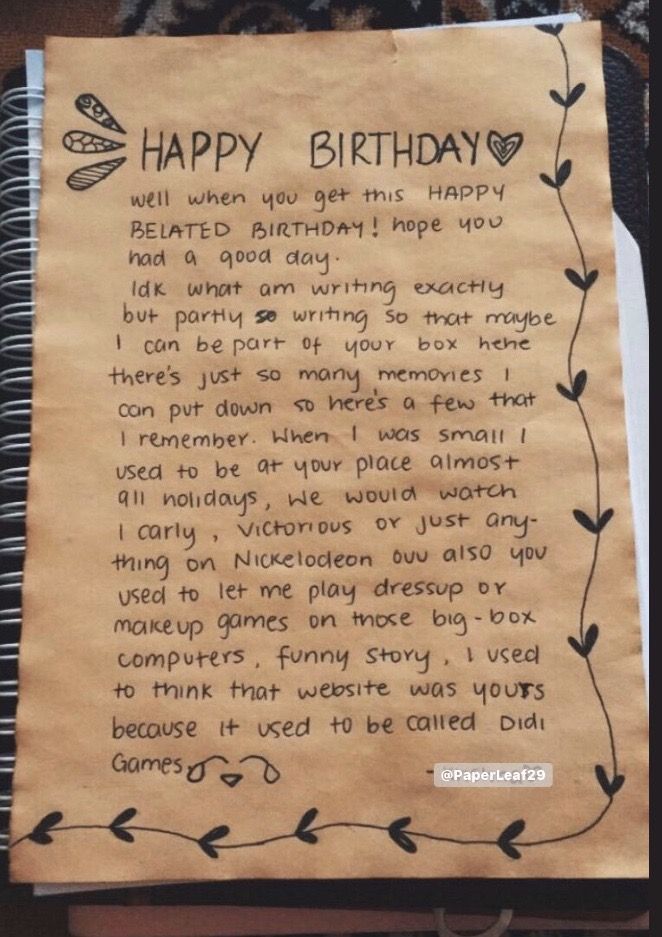 HAPPY BIRTHDAY
well when you get this HAPPY
BELATED BIRTHDAY! hope you
had a good day.
Idk what am writing exactly
but partly so writing so that maybe
I can be part of your box hehe
there's just so many memories I
can put down so here's a few that
I remember. When I was small I
used to be at your place almost
all holidays, we would watch
I carly, victorious or just any-
thing on Nickelodeon ouu also you
used to let me play dressup or
makeup games on those big-box
computers, funny story, I used
to think that website was yours
because it used to be called Didi
Games
@PaperLeaf29